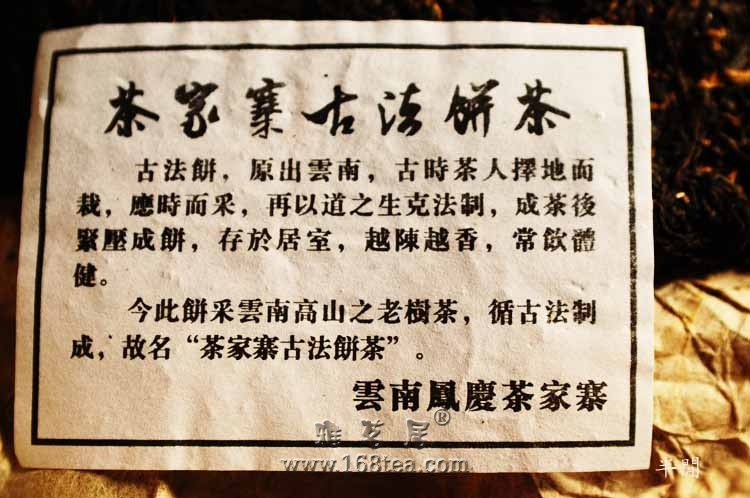 茶家寨古法餅茶
古法餅，原出雲南，古時茶人擇地而
栽，應時而采，再以道之生克法制，成茶後
緊壓成餅，存於居室，越陳越香，常飲體
健。
今此餅采雲南高山之老樹茶，循古法制
成，故名“茶家寨古法餅茶”。
雲南鳳慶茶家寨
雅茗居®
www.168tea.com
半閒